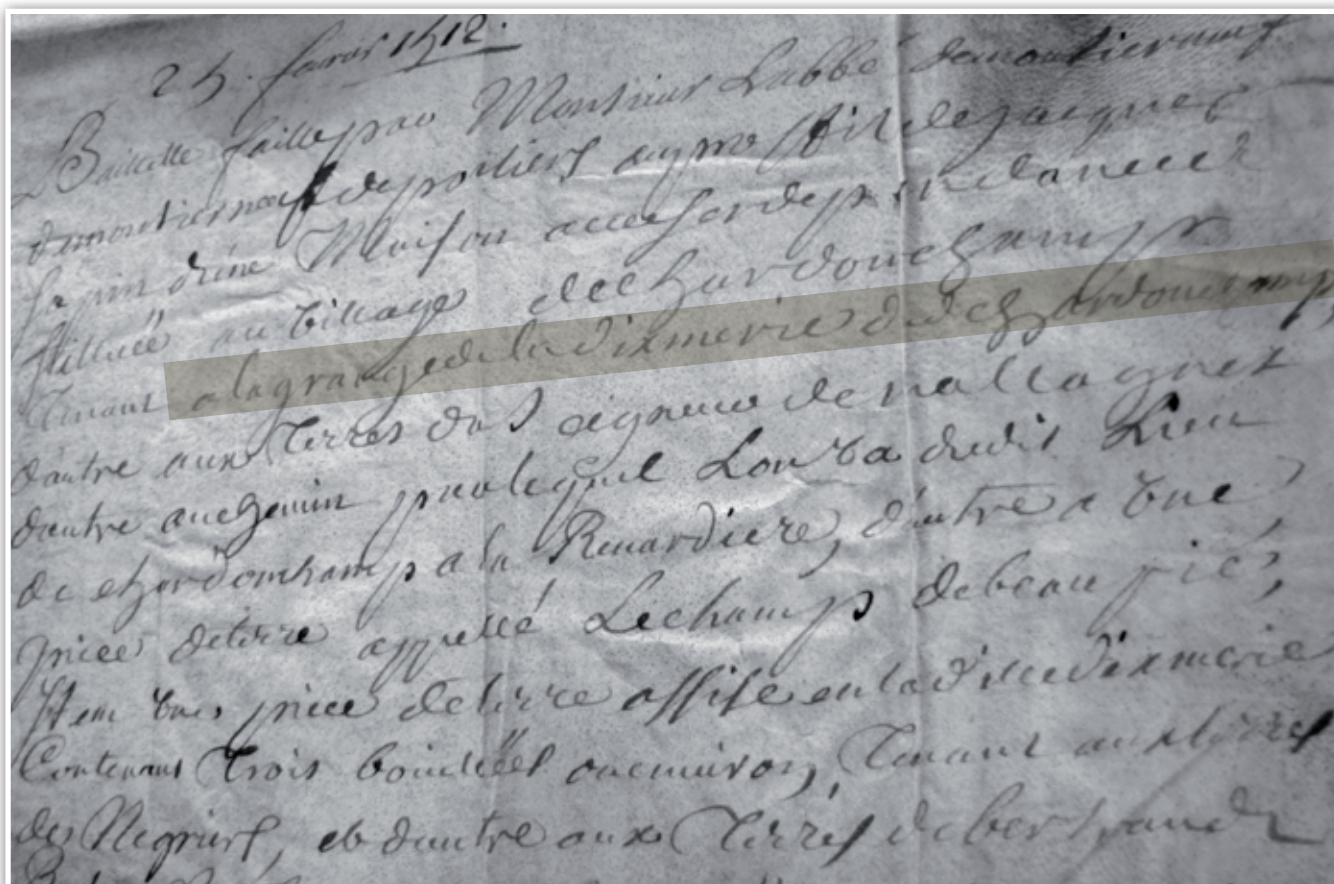 25. feuvrier 1412.
Baillette faitte par Monsieur Labbé demoutierneuf
demoutierneuf de poitiers au proffit de Jacques
Japin d'une Maison accessoirs dependances
scittuée au village de chardonchamps
Tenant a la grange de la dixmerie dud chardonchamps
dautre aux Terres du Seigneur de
dautre au chemin par lequel Lon va dudit Lieu
de chardonchamp a la Renardiere, dautre a une
piece de terre appellé Lechamp debeaupié,
Item une piece de terre assise en lad dixmerie
Contenant Trois boicellées ou environ, Tenant aux terres
des Negriers, et dautre aux Terres de bertrand